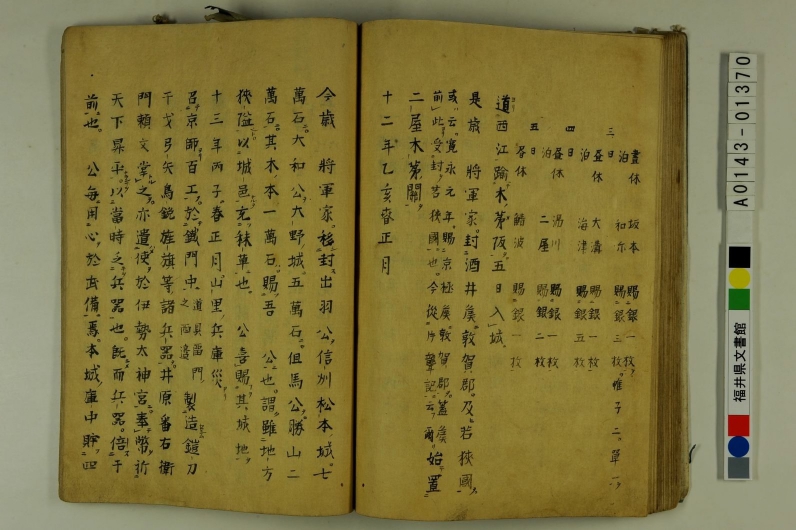 晝休 坂本 賜銀一枚
泊 和尓 賜銀三枚帷子二單一
三日
昼休 大溝 賜銀一枚
泊 海津 賜銀五枚
四日
昼休 湯川 賜銀一枚
泊 二屋 賜銀二枚
五日
昼休 鯖波 賜銀一枚
道西江踰木茅阪五日入城
是歳 將軍家封酒井矦敦賀郡及若狹國
或云寛永元年賜京極矦敦賀郡蓋矦
前此受封若狹國也今從片聾記云爾 始置
二屋木茅關
十二年乙亥春正月
今歳 將軍家移封出羽公信州松本城七
萬石大和公大野城五萬石但馬公勝山二
萬石其木本一萬石賜吾 公也謂雖地方
狹隘以城邑充秣草也 公喜賜其城地
十三年丙子春正月山里兵庫災
召京師百工於鐵門中 道具當門之西邊 製造鎧刀
干戈弓矢鳥銃旌旗等諸兵器井原番右衛
門頼文掌之亦遣使於伊勢太神宮奉幣祈
天下昇平以當時之兵器也既而兵器倍于
前也 公毎用心於武備焉本城庫中貯四
A0143-01370
福井県文書館